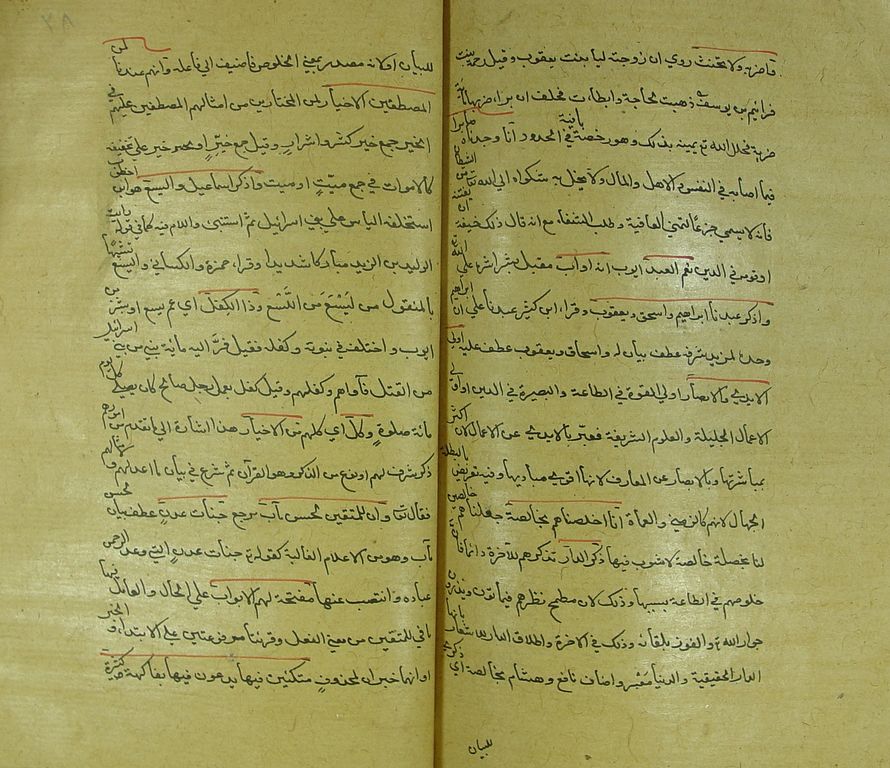 فاضرب به ولا تحنث روي ان زوجته ليا بنت يعقوب وقيل رحمة بنت
فرائيم بن يوسف ذهبت لحاجة وابطأت فحلف ان برا، ضربها مائة
ضربة فحلل الله تع يمينه بذلك وهو رخصة باقية في الحدود انا وجدناه صابرا
فيما اصابه في النفس والاهل والمال ولا يخل به شكواه الى الله تعا من الشيطان
فانه لا يسمى جزعا كتمني العافية وطلب الشفاء مع انه قال ذلك خيفة ان يفتنه
او قومه في الدين نعم العبد ايوب انه اواب مقبل بشراشره على الله تع
واذكر عبدنا ابراهيم واسحق ويعقوب وقراء ابن كثير عبدنا على ان ابراهيم
وحده لمزيد شرفه عطف بيان له واسحاق ويعقوب عطف عليه اولي
الايدي والابصار اولي القوة في الطاعة والبصيرة في الدين او اولي
الاعمال الجليلة والعلوم الشريفة فعبر بالايدي عن الاعمال لان اكثر
بمباشرتها وبالابصار عن المعارف لانها اقوى مباديها وفيه تعريض بالبطلة
الجهال لانهم كالزمنى والعماة انا اخلصناهم بخالصة جعلناهم خالصين
لنا بخصلة خالصة لا شوب فيها ذكرى الدار تذكرهم للآخرة دائما فان
خلوصهم في الطاعة بسببها وذلك لان مطمح نظرهم فيما يأتون ويذرون
جوار الله تع والفوز بلقائه وذلك في الآخرة واطلاق الدار للاشعار بانها
الدار الحقيقية والدنيا معبر واضاف نافع وهشام بخالصة الى ذكرى
للبيان
للبيان او لانه مصدر بمعنى الخلوص فاضيف الى فاعله وانهم عندنا لمن
المصطفين الاخيار لمن المختارين من امثالهم المصطفين عليهم في
الخير جمع خير كشر واشرار وقيل جمع خيّر او خير على تخفيفه
كالاموات في جمع ميّت او ميت واذكر اسماعيل واليسع هو ابن اخطوب
استخلفه الياس على بني اسرائيل ثم استنبئ واللام فيه كما في قوله رأيت
الوليد بن اليزيد مباركا شديدا وقراء حمزة والكسائي واليسع تشبيها
بالمنقول من ليسع من اللسع وذا الكفل ابن عم يسع او بشر بن
ايوب واختلف في نبوته وكفله فقيل فرّ اليه مائة نبي من بني اسرائيل
من القتل فآواهم وكفلهم وقيل كفل بعمل رجل صالح كان يصلي كل يوم
مائة صلوة وكل اي كلهم من الاخيار هذا اشارة الى ما تقدم من امورهم
ذكر شرف لهم او نوع من الذكر وهو القرآن ثم شرع في بيان ما اعد لهم ولامثالهم
فقال تعا وان للمتقين لحسن مآب مرجع جنات عدن عطف بيان لحسن
مآب وهو من الاعلام الغالبة كقوله جنات عدن التي وعد الرحمن
عباده وانتصب عنها مفتحة لهم الابواب على الحال والعامل فيها
ما في للمتقين من معنى الفعل وقرئتا مرفوعتين على الابتداء والخبر
او انهما خبران لمحذوف متكئين فيها يدعون فيها بفاكهة كثيرة